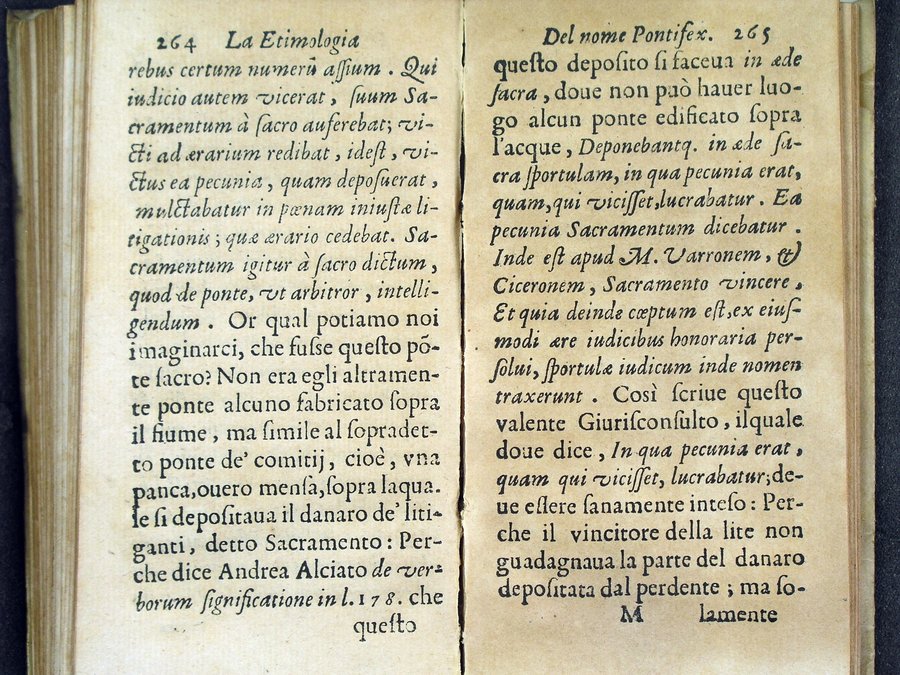 264 La Etimologia
rebus certum numerū aſſium . Qui
iudicio autem vicerat , ſuum Sa-
cramentum à ſacro auferebat; vi-
cti ad ærarium redibat , ideſt , vi-
ctus ea pecunia , quam depoſuerat ,
mulctabatur in pœnam iniuſtæ li-
tigationis ; quæ ærario cedebat. Sa-
cramentum igitur à ſacro dictum ,
quod de ponte, vt arbitror , intelli-
gendum . Or qual potiamo noi
imaginarci, che fuſſe queſto pō-
te ſacro? Non era egli altramen-
te ponte alcuno fabricato ſopra
il fiume , ma ſimile al ſopradet-
to ponte de' comitij, cioè , vna
panca,ouero menſa,ſopra laqua.
le ſi depoſitaua il danaro de' liti-
ganti , detto Sacramento : Per-
che dice Andrea Alciato de ver-
borum ſignificatione in l. 178. che
queſto
Del nome Pontifex. 265
queſto depoſito ſi faceua in æde
ſacra , doue non può hauer luo-
go alcun ponte edificato ſopra
l'acque , Deponebantq. in æde ſa-
cra ſportulam, in qua pecunia erat,
quam,qui viciſſet,lucrabatur . Ea
pecunia Sacramentum dicebatur .
Inde eſt apud M. Varronem , &
Ciceronem , Sacramento vincere ,
Et quia deinde cœptum eſt,ex eiuſ-
modi ære iudicibus honoraria per-
ſolui, ſportulæ iudicum inde nomen
traxerunt . Così ſcriue queſto
valente Giuriſconſulto , ilquale
doue dice , In qua pecunia erat ,
quam qui viciſſet, lucrabatur;de-
ue eſſere ſanamente inteſo : Per-
che il vincitore della lite non
guadagnaua la parte del danaro
depoſitata dal perdente ; ma ſo-
M lamente